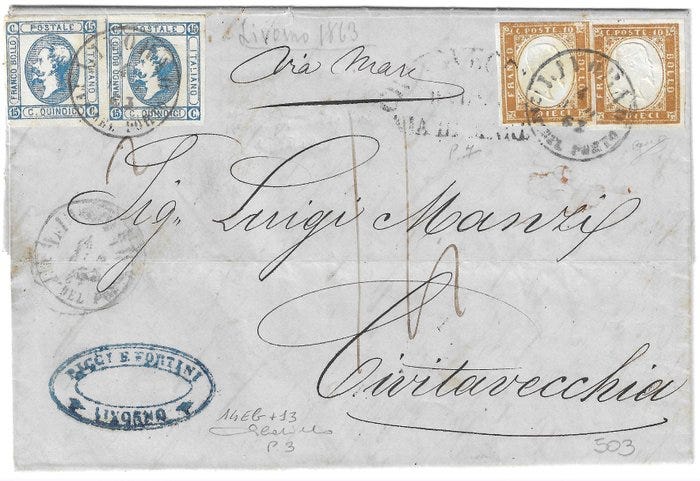 FRANCO BOLLO POSTALE ITALIANO C. QUINDICI 15 C
FRANCO BOLLO POSTALE ITALIANO C. QUINDICI 15 C
FRANCO C. POSTE 10 BOLLO C. DIECI 10
FRANCO C. POSTE 10 BOLLO C. DIECI 10
Livorno 1863
Via Mare
LIVORNO
DEL PORTO
VIA DI MARE
P. 7
Sig. Luigi Manzi
DEL PORTO
Civitavecchia
RICCI E FORTINI
LIVORNO
14Eb+13
P. 3
503